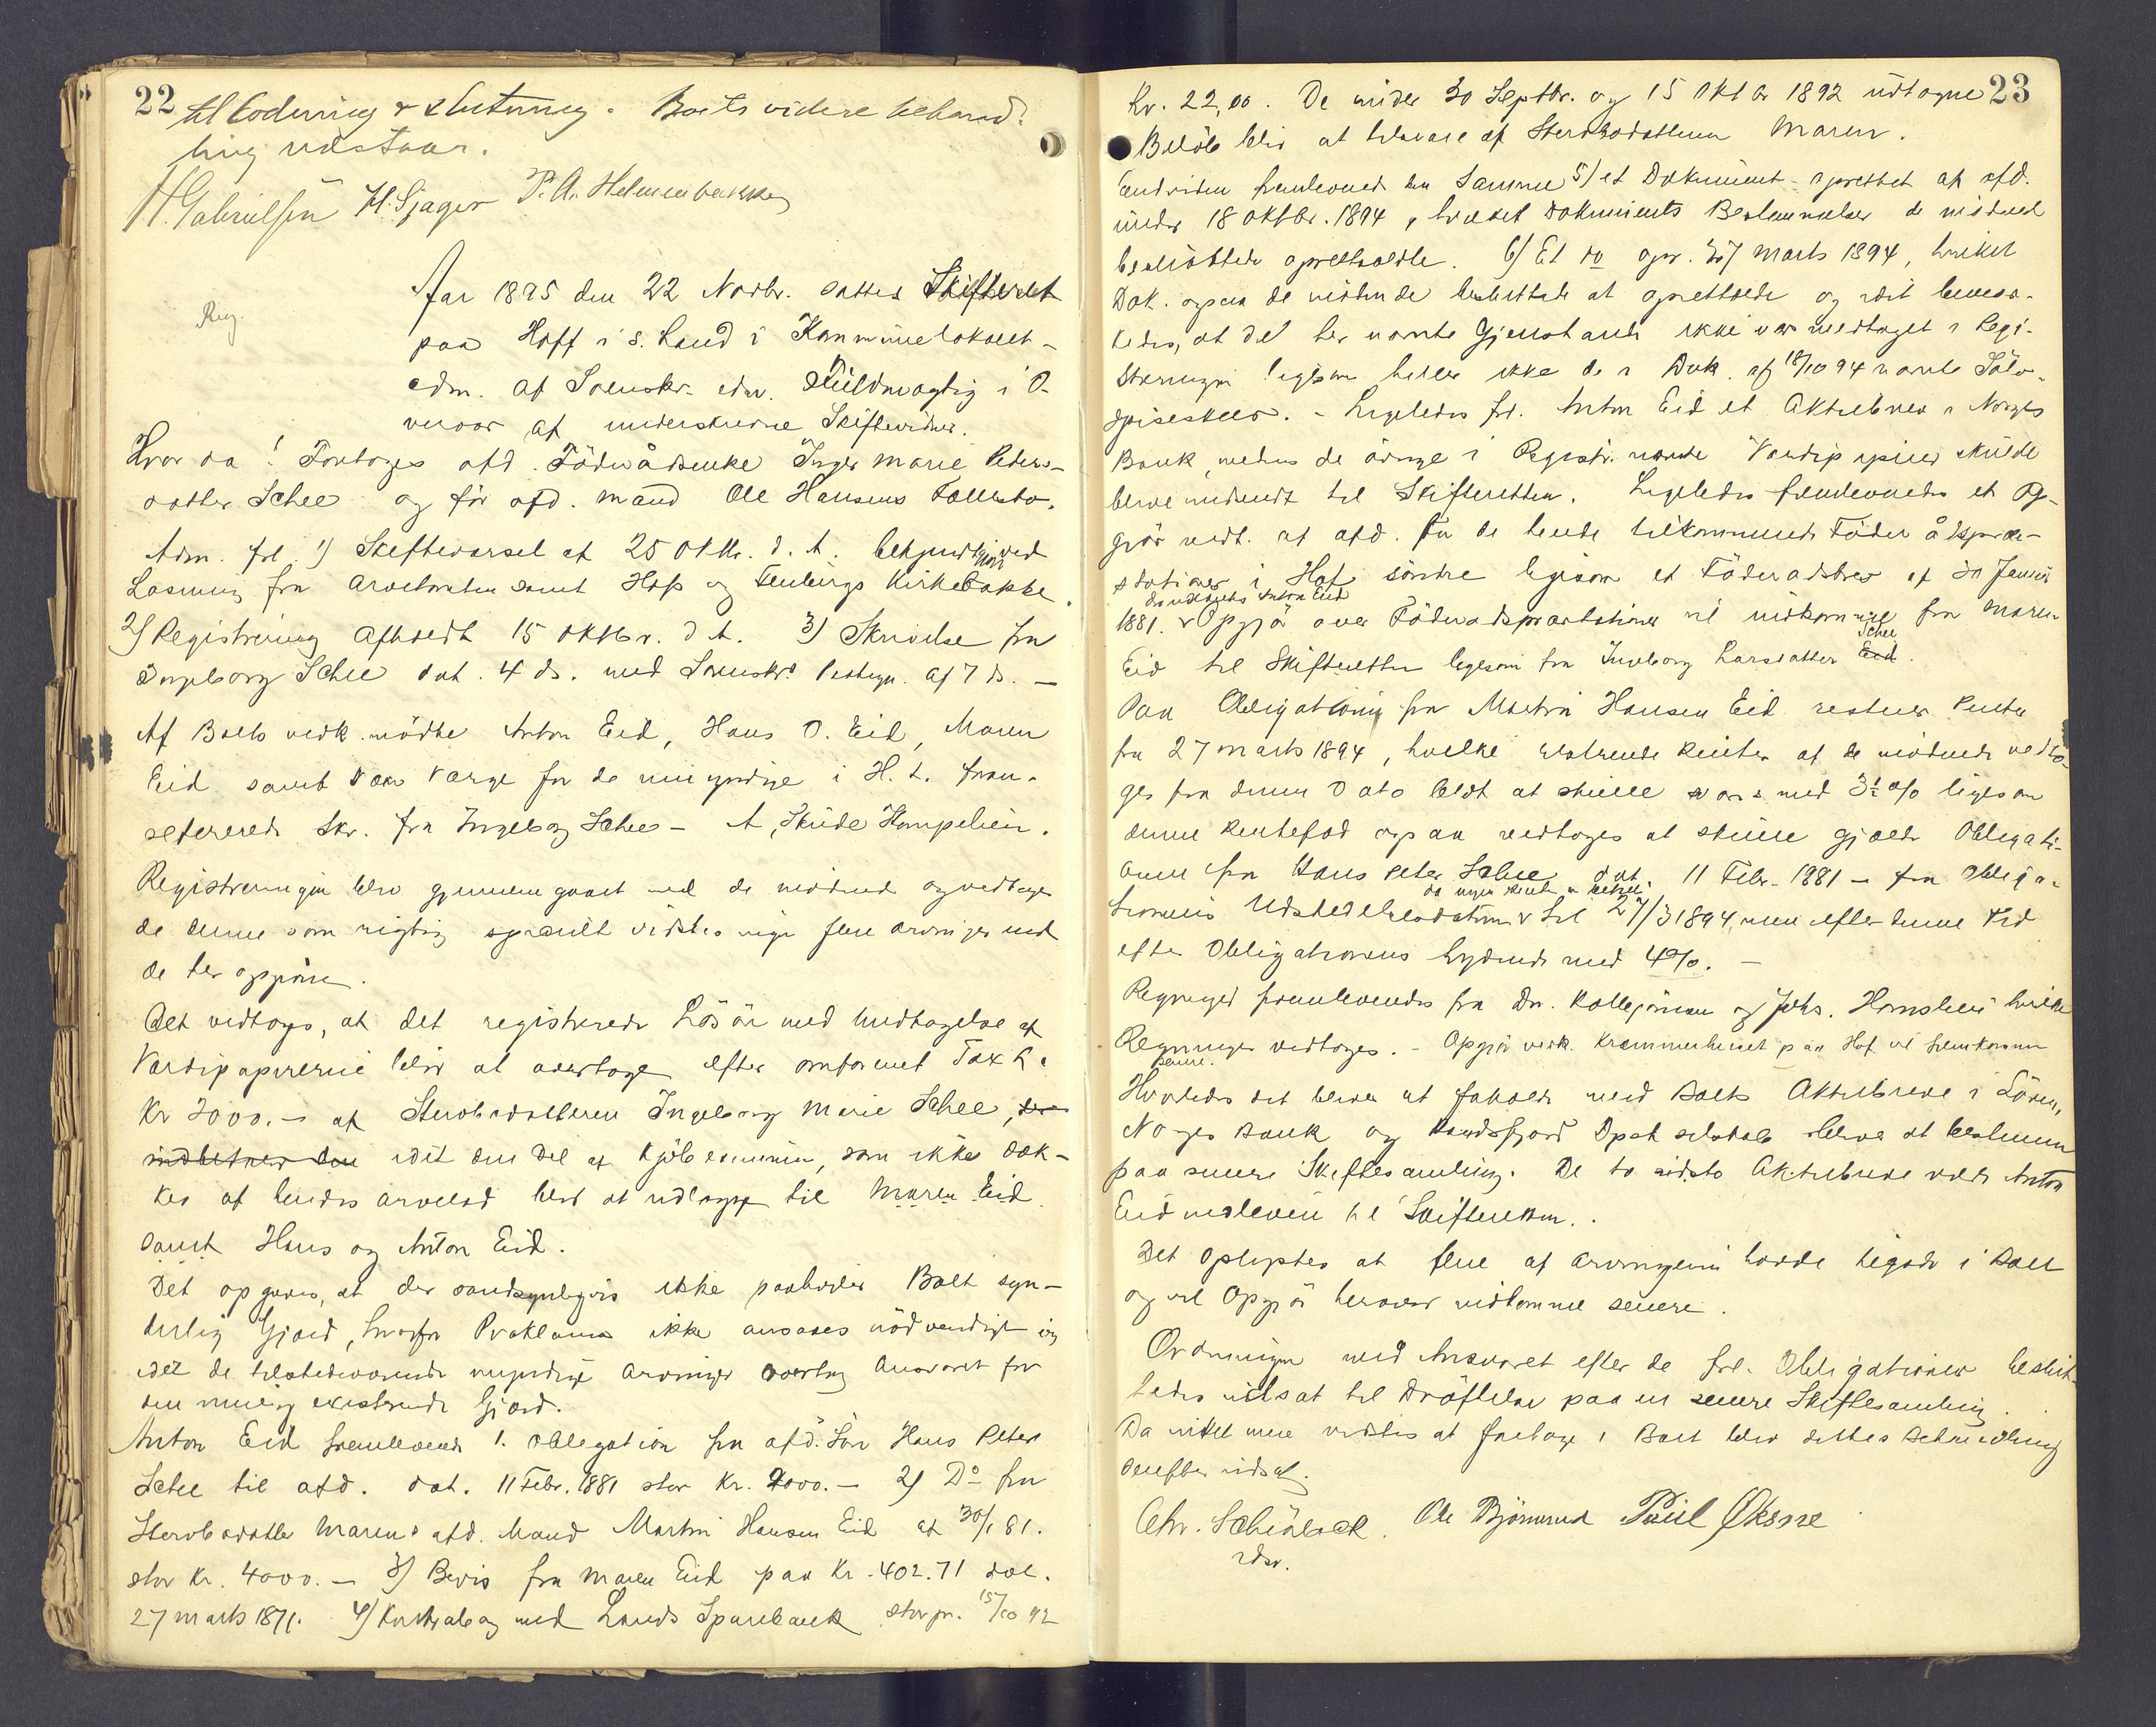 22
til Lodning & Slutning. Boets videre behand-
ling udstaar.
H. Gabrielsen H. Sjager P. A. Helmenbakken
Reg.
Aar 1895 den 22 Novbr. sattes Skifteret
paa Hoff i S. Land i Kommunelokalet –
adm. af Sorenskr. edsv. Fuldmægtig i O-
vervær af underskrevne Skiftevidner.
Hvor da: Foretoges afd. Föderådsenke Inger Marie Peders-
datter Schee og før afd. Mand Ole Hansens
Adm. frl. 1) Skiftevarsel af 25 Oktbr. d. A. bekjendtgjort ved
Læsning fra Arvetomten samt Hofs og Fluberg Kirkebakke.
2) Registrering afholdt 15 Oktbr. d. A. 3) Skrivelse fra
Ingeborg Schee dat. 4 ds. med Sorenskr. Paategn. af 7 ds. –
Af Boets vedk. mödte Anton Eid, Hans O. Eid, Maren
Eid samt som Værge for de umyndige i H. L.
refererede Skr. fra Ingeborg Schee – A. Skude Hampelien.
Registreringen blev gjennemgaaet med de mödende og vedtoges
de denne som rigtig specielt vidstes ingen flere Arvinger end
de her opgivne.
Det vedtoges, at det registrerede Lösöre med Undtagelse af
Værdipapirerne blir at overtage efter omforenet Taxt
Kr 2000.– af Stervbodatteren Ingeborg Marie Schee, der
indbetaler den idet den Del af Kjöbesummen, som ikke dæk-
kes af hendes Arvelod blir at udlægge til Maren Eid
samt Hans og Anton Eid.
Det opgaves, at der sandsynligvis ikke paahviler Boet syn-
derlig Gjæld, hvorfor Proklama ikke ansaaes nödvendigt
idet de tilstedeværende myndige Arvinger overtog Ansvaret for
den mulig existerende Gjæld.
Anton Eid fremlevered 1. Obligation fra afd. Sön Hans Peter
Schee til afd. dat. 11 Febr. 1881 stor Kr. 2000.– 2) Do fra
Stervbodatter Marens afd. Mand Martin Hansen Eid af 30/1 81.
stor Kr. 4000.– 3) Bevis fra Maren Eid paa Kr. 402.71 dat.
27 Marts 1891. 4) Kontrabog med Lands Sparebank stor pr. 15/10 92
23
Kr. 22,00. De under 30 Septbr. og 15 Oktbr 1892 udtagne
Belöb blir at tilsvare af Stervbodatteren Maren.
Endvidere fremlevered den Samme 5) et Dokument oprettet af afd.
under 18 Oktbr. 1894, hvilket Dokuments Bestemmelser de mödende
besluttede opretholdte. 6) Et do opr. 27 Marts 1894, hvilket
Dok. ogsaa de mödende besluttede at opretholde og idet bemær-
kedes, at de her nævnte Gjenstande ikke var medtaget i Regi-
streringen ligesom heller ikke de i Dok. af 18/10 94 nævnte Sölv-
spiseskeer. – Ligeledes frl. Anton Eid et Aktiebrev i Norges
Bank, medens de övrige i Registr. nævnte Værdipapirer skulde
blive indsendt til Skifteretten. Ligeledes fremleveredes et Op-
gjör vedk. af afd. fra de hende tilkommende Föderådspræ-
stationer i Hof söndre ligesom et Föderaadsbrev af 30 Januar
da udlagtes Anton Eid
1881. v Opgjör over Föderaadspræstationer vil indkomme fra Maren
Eid til Skifteretten ligesom fra Ingeborg Larsdatter Eid Schee.
Paa Obligationen fra Martin Hansen Eid resterer Renter
fra 27 Marts 1894, hvilke resterende Renter af de mödende vedto-
ges fra denne Dato blot at skulle svares med 3½ % ligesom
denne Rentefod ogsaa vedtoges at skulle gjælde Obligati-
onen fra Hans Peter Schee dat. 11 Febr. 1881 – fra Obliga-
da ingen Rente er betalt
tionens Udstedelsesdatum v til 27/3 1894, men efter denne Tid
efter Obligationens Lydende med 4%. –
Regninger fremleveredes fra Dr. Kolbjörnsen og Johs. Homslien hvilke
Regninger vedtoges. – Opgjör vedk. Krammerhuset paa Hof vil fremkomme
senere.
Hvorledes det bliver at forholde med Boets Aktiebreve i
Norges Bank og Randsfjord Dpsk selskab blive at bestemme
paa senere Skiftesamling. De to sidste Aktiebreve vilde Anton
Eid indlevere til Skifteretten.
Det oplystes at flere af Arvingerne havde tilgode i Boet
og vil Opgjör herover indkomme senere.
Ordningen med Ansvaret efter de frl. Obligationer beslut-
tedes udsat til Dröftelse paa en senere Skiftesamling.
Da intet mere vidstes at foretage i Boet blev dettes Behandling
derefter udsat.
Chr. Schiölack. Ole Björnerud Paul Øksne
edsv.